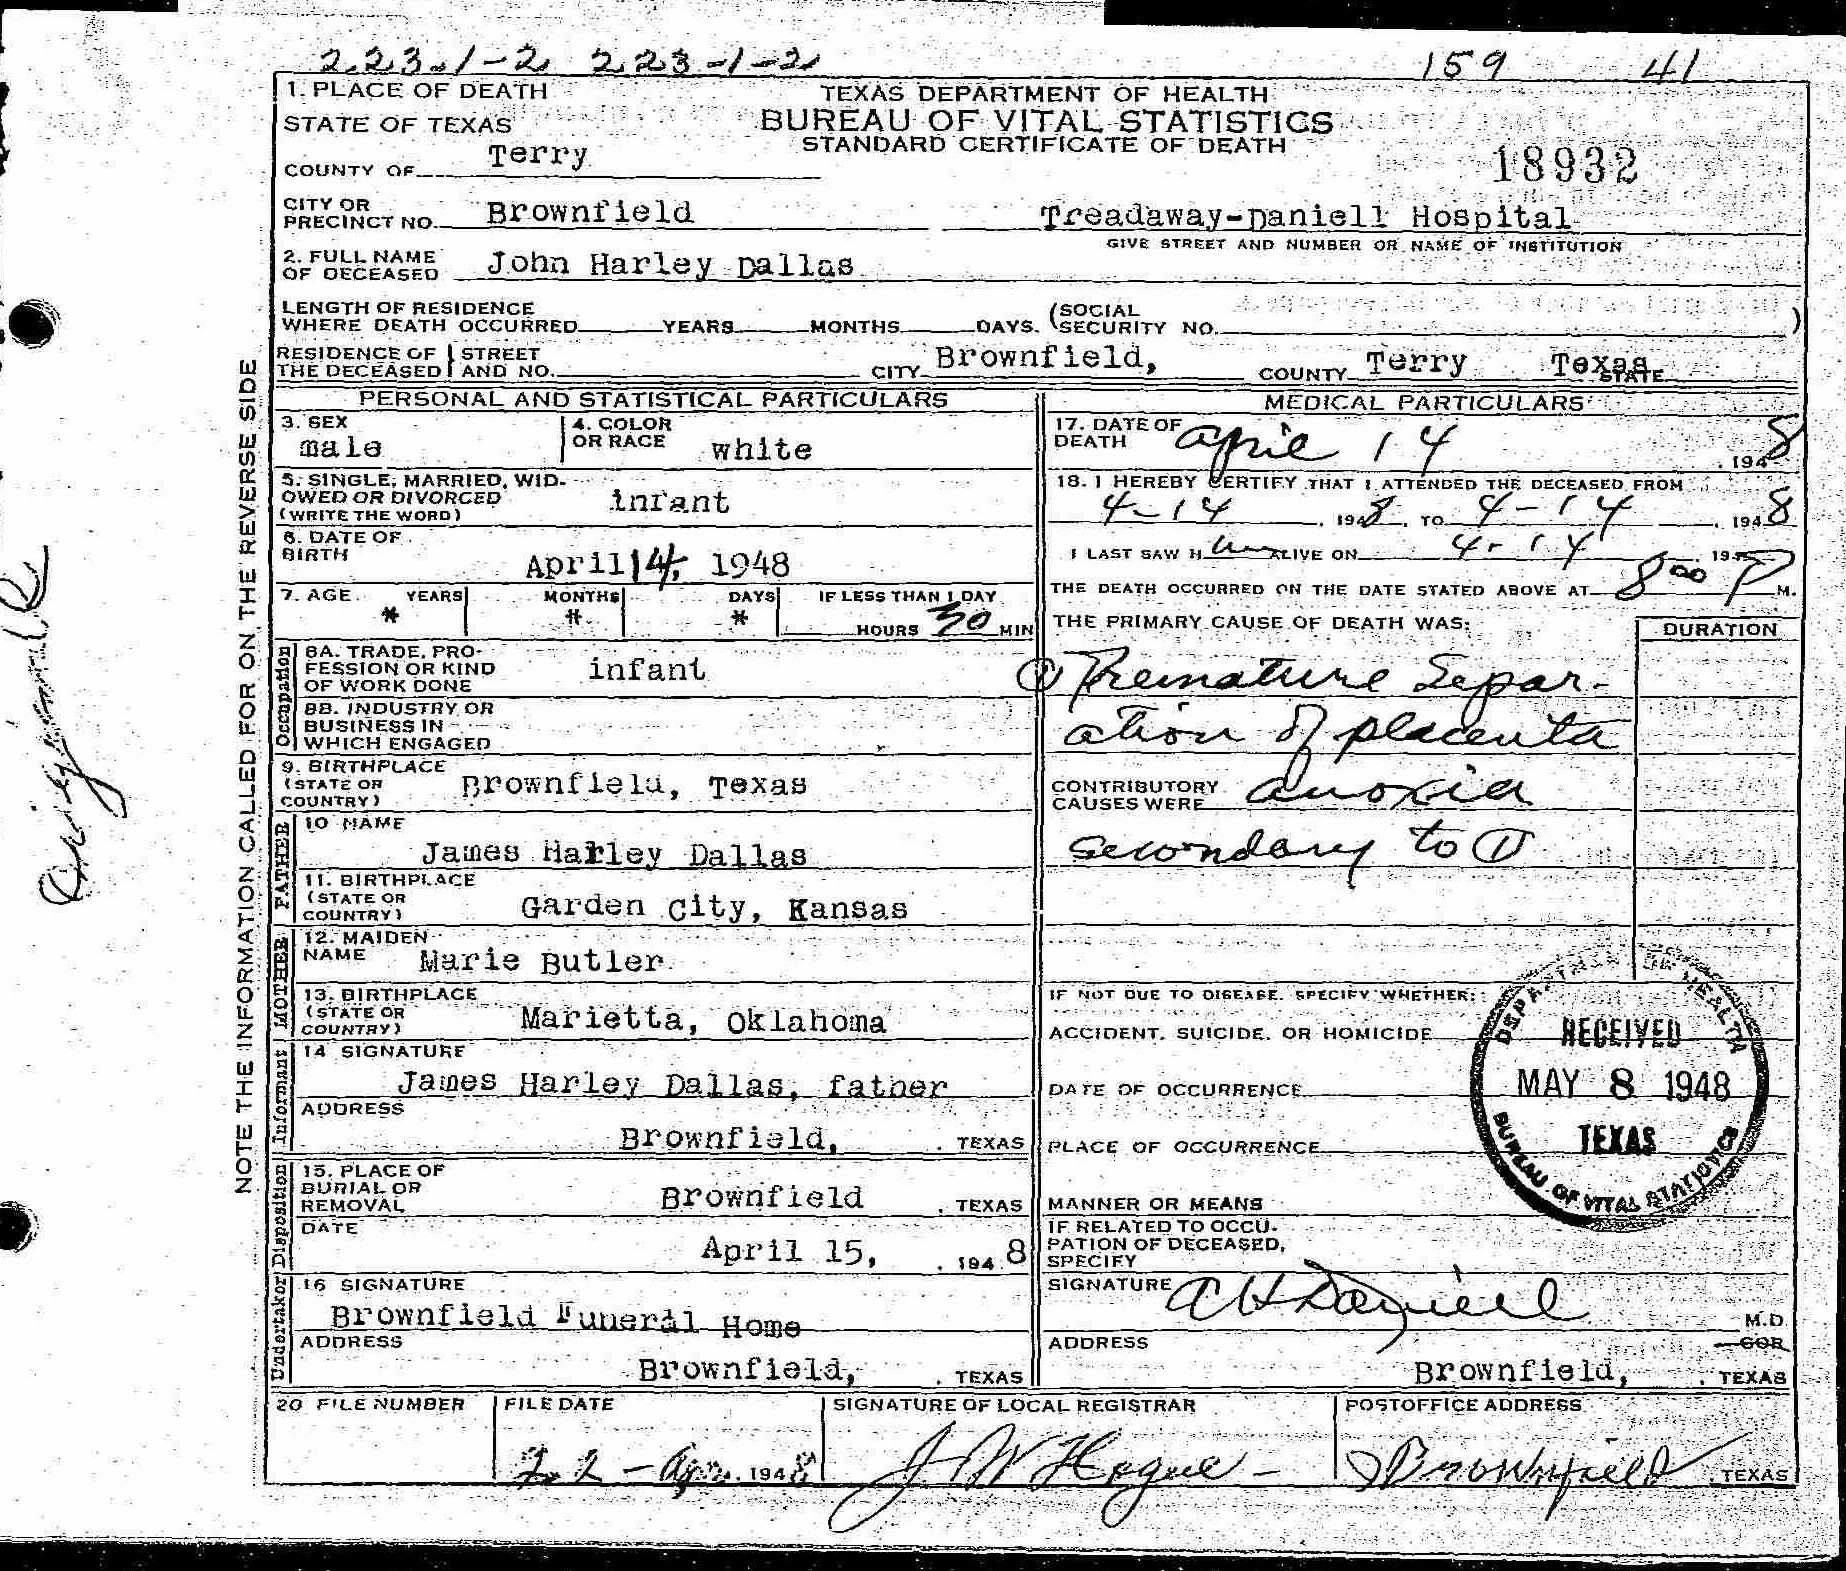 223.1-2 223-1-2 159 41
1. PLACE OF DEATH
STATE OF TEXAS
COUNTY OF Terry
TEXAS DEPARTMENT OF HEALTH
BUREAU OF VITAL STATISTICS
STANDARD CERTIFICATE OF DEATH
18932
CITY OR
PRECINCT NO. Brownfield Treadaway-Daniell Hospital
GIVE STREET AND NUMBER OR NAME OF INSTITUTION
2. FULL NAME
OF DECEASED John Harley Dallas
LENGTH OF RESIDENCE
WHERE DEATH OCCURRED YEARS MONTHS DAYS. (SOCIAL
SECURITY NO. )
RESIDENCE OF THE DECEASED STREET AND NO. CITY Brownfield, COUNTY Terry Texas STATE
PERSONAL AND STATISTICAL PARTICULARS
3. SEX
male
4. COLOR
OR RACE white
5. SINGLE, MARRIED, WID-
OWED OR DIVORCED
(WRITE THE WORD) infant
6. DATE OF
BIRTH April 14, 1948
7. AGE YEARS MONTHS DAYS IF LESS THAN 1 DAY
* * * HOURS 30 MIN
Occupation
8A. TRADE, PRO-
FESSION OR KIND
OF WORK DONE infant
8B. INDUSTRY OR
BUSINESS IN
WHICH ENGAGED
9. BIRTHPLACE
(STATE OR
COUNTRY) Brownfield, Texas
FATHER
10 NAME
James Harley Dallas
11. BIRTHPLACE
(STATE OR
COUNTRY) Garden City, Kansas
MOTHER
12. MAIDEN
NAME Marie Butler
13. BIRTHPLACE
(STATE OR
COUNTRY) Marietta, Oklahoma
Informant
14 SIGNATURE
James Harley Dallas, father
ADDRESS
Brownfield, . TEXAS
Disposition
15. PLACE OF
BURIAL OR
REMOVAL Brownfield , TEXAS
DATE
April 15, , 194 8
Undertaker
16 SIGNATURE
Brownfield Funeral Home
ADDRESS
Brownfield, . TEXAS
MEDICAL PARTICULARS
17. DATE OF
DEATH April 14 , 1948
18. I HEREBY CERTIFY THAT I ATTENDED THE DECEASED FROM
4-14 , 1948, TO 4-14 , 1948
I LAST SAW H im ALIVE ON 4-14 , 19
THE DEATH OCCURRED ON THE DATE STATED ABOVE AT 8 00 P M.
THE PRIMARY CAUSE OF DEATH WAS: DURATION
① Premature Separ-
ation of placenta
CONTRIBUTORY
CAUSES WERE anoxia
secondary to ①
IF NOT DUE TO DISEASE, SPECIFY WHETHER:
ACCIDENT, SUICIDE, OR HOMICIDE
DATE OF OCCURRENCE
PLACE OF OCCURRENCE
MANNER OR MEANS
IF RELATED TO OCCU-
PATION OF DECEASED,
SPECIFY
SIGNATURE A H Daniell
M.D.
COR
ADDRESS
Brownfield, , TEXAS
DEPARTMENT OF HEALTH
RECEIVED
MAY 8 1948
TEXAS
BUREAU OF VITAL STATISTICS
20 FILE NUMBER FILE DATE SIGNATURE OF LOCAL REGISTRAR POSTOFFICE ADDRESS
22 - Apr. , 1948 J W Hogue - Brownfield , TEXAS
NOTE THE INFORMATION CALLED FOR ON THE REVERSE SIDE